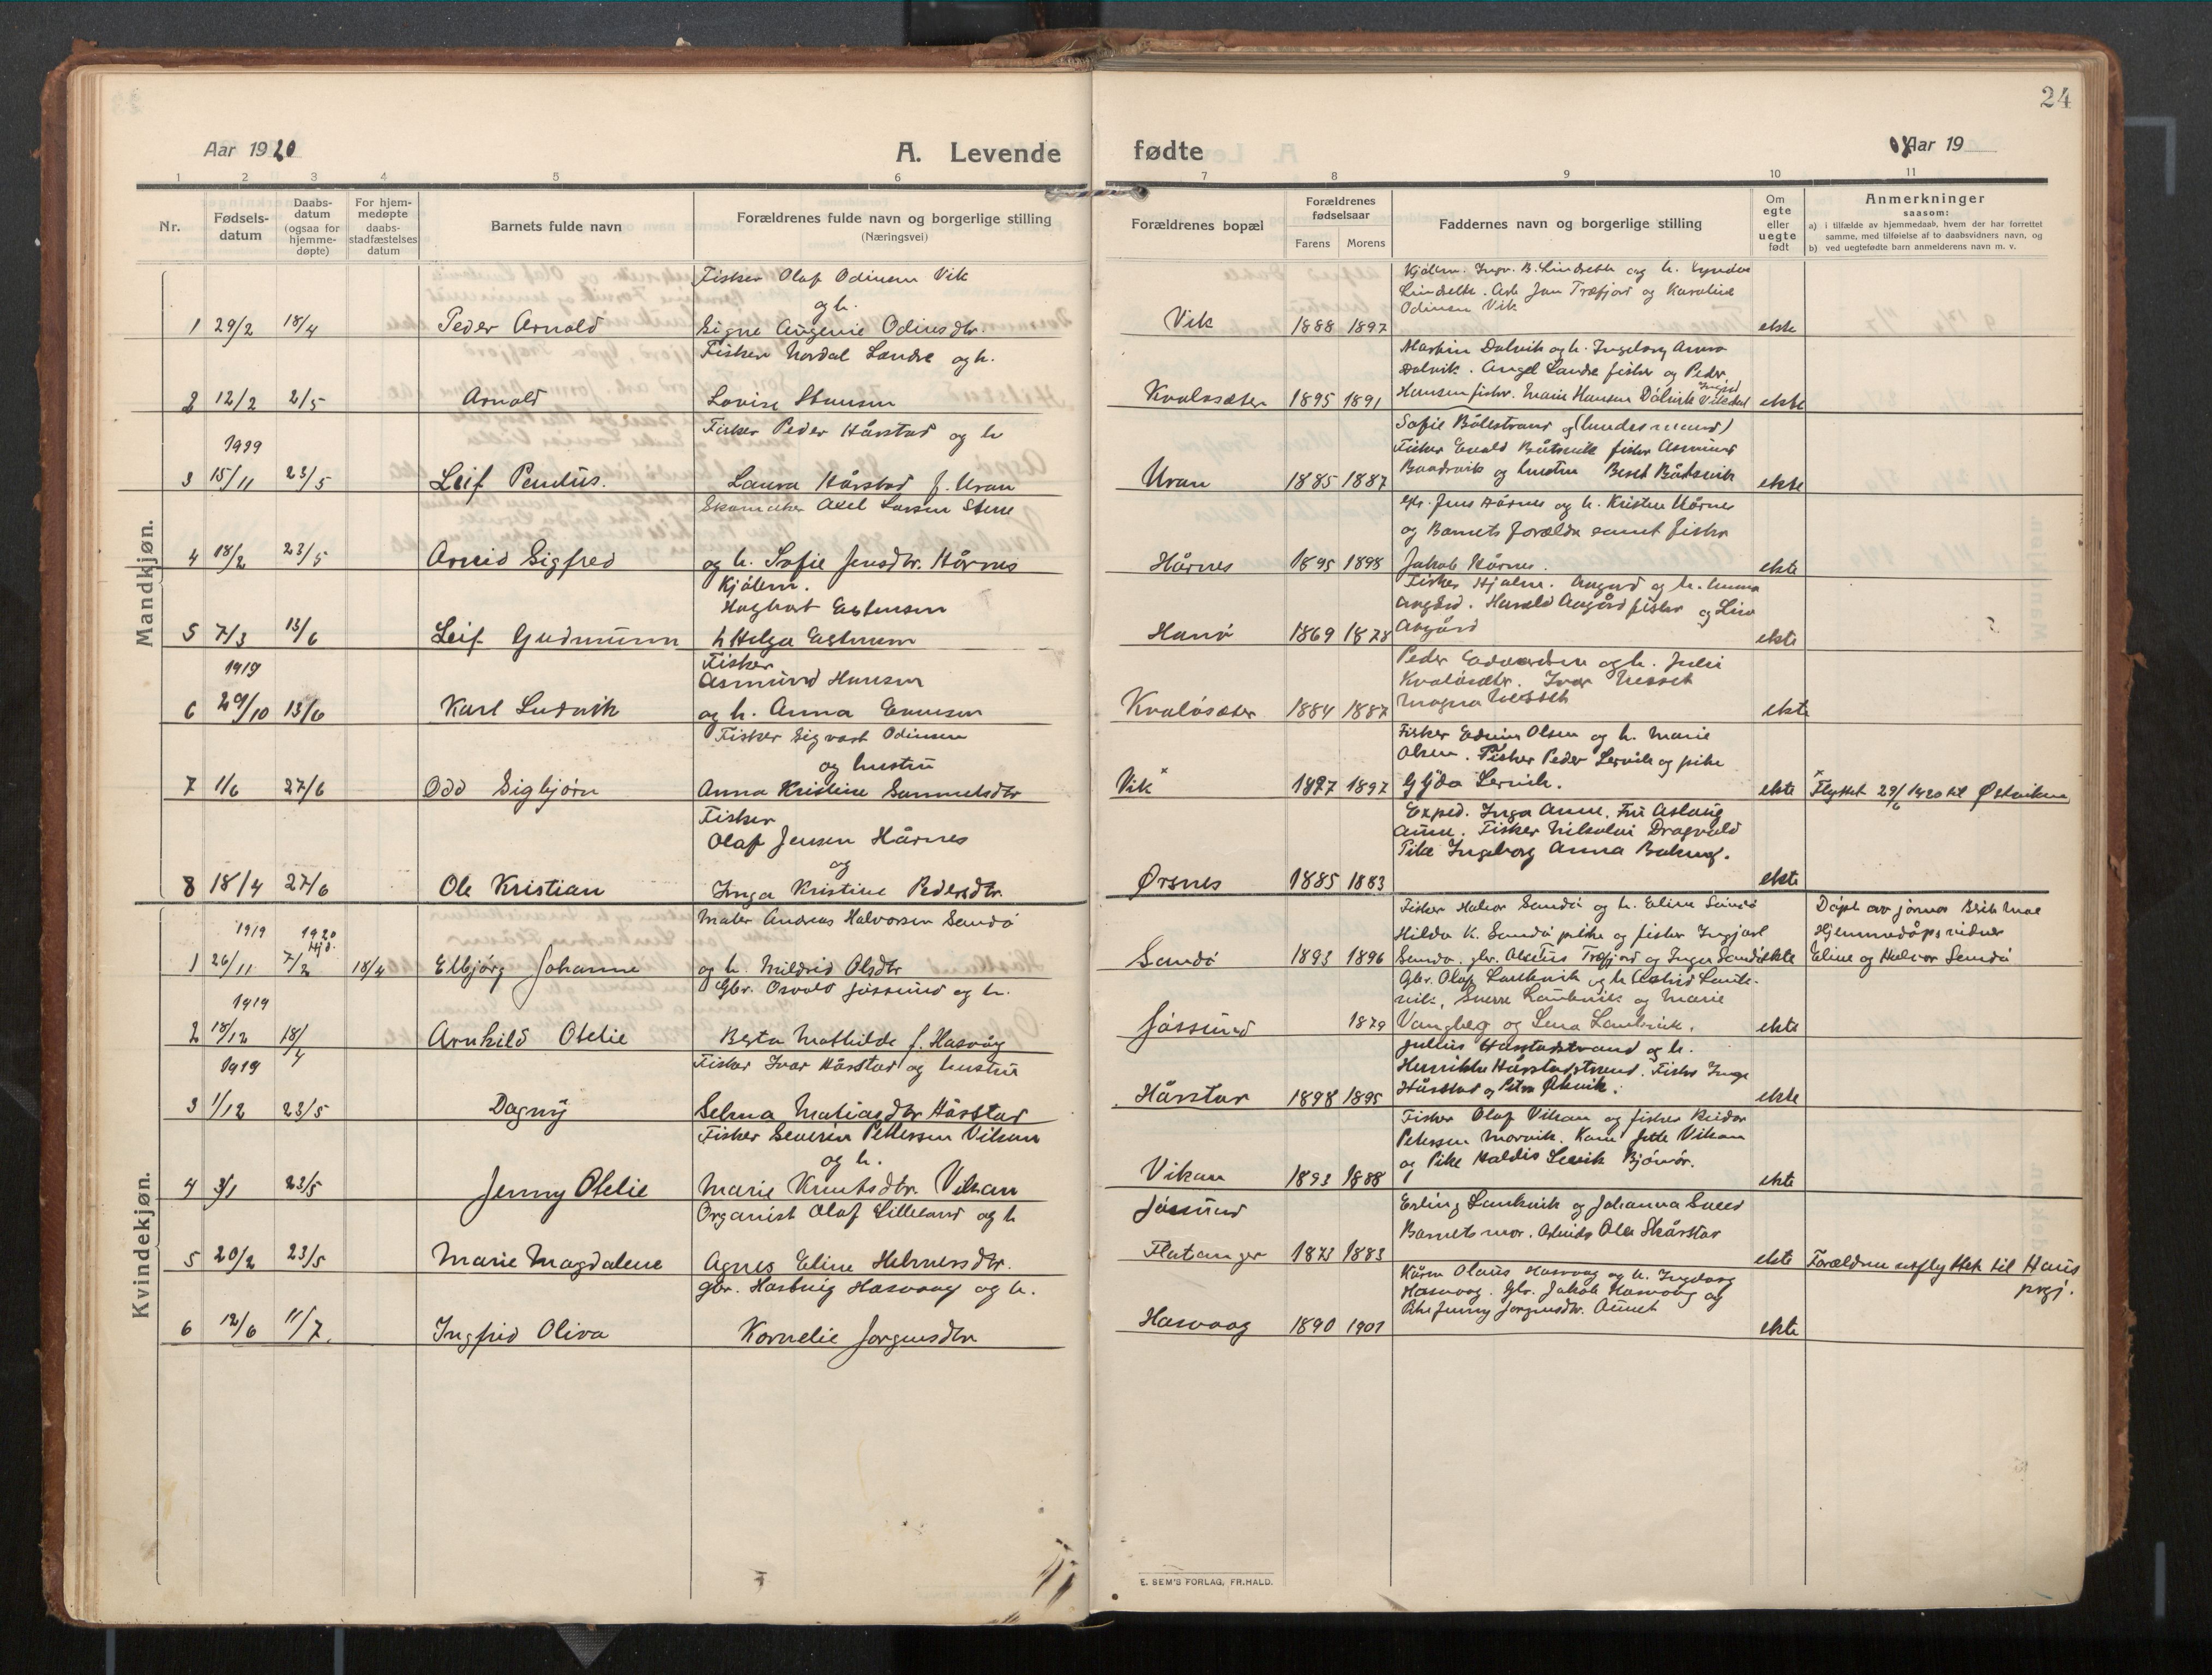 24
Aar 1920
A. Levende
fødte
Aar 19
1 2 3 4 5 6 7 8 9 10 11
Nr.
Fødsels-
datum
Daabs-
datum
(ogsaa for
hjemme-
døpte)
For hjem-
medøpte
daabs-
stadfæstelses
datum
Barnets fulde navn
Forældrenes fulde navn og borgerlige stilling
(Næringsvei)
Forældrenes bopæl
Forældrenes
fødselsaar
Farens Morens
Faddernes navn og borgerlige stilling
Om
egte
eller
uegte
født
Anmerkninger
saasom:
a) i tilfælde av hjemmedaab, hvem der har forrettet
samme, med tilføielse af to daabsvidners navn, og
b) ved uegtefødte barn anmelderens navn m. v.
Mandkjøn.
Fisker Olaf Odinsen Vik
og h.
1 29/2 18/4 Peder Arnold Signe Augenie Odinsdtr. Vik 1888 1897 ekte
Lindseth. Jan Træfjord og Karoline
Odinsen Vik
Fisker Nordal Landre og h.
2 12/2 2/5 Arnold Lovise Kvaløsæter 1895 1891 ekte
Martin Dalvik og h. Ingeborg Anna
Dalvik. Angel Landre fisker og Peder
Hansen fisker. Marie Hansen Dalvik
1919
Fisker Peder Hårstad og h
3 15/11 23/5 Leif Pentus. Laura Hårstad f. Uran Uran 1885 1887 ekte
Sofie Båtstrand
Fisker Båtsvik fisker Asmund
og hustru Båtsvik
Skomaker Axel Larsen Stene
4 18/2 23/5 Arvid Sigfred og h. Sofie Jensdtr. Hårnes Hårnes 1895 1898 ekte
Jens Hårnes og h. Kristine Hårnes
og Barnets forældre samt fisker
Jakob Hårnes.
Kjøbm.
Hagbart Estensen
5 7/3 13/6 Leif Gudmund h Helga Estensen 1869 1878 ekte
Fisker Hjalm. og h. Anna
Harald fisker og Lina
1919
Fisker
Asmund Hansen
6 29/10 13/6 Karl Ludvik og h. Anna Kvaløsæter 1884 1887 ekte
Peder Edvardsen og h. Julie
Kvaløsæter. Ivar Nesset
Magna Nesset
Fisker Sigvart Odinsen
og hustru
7 1/6 27/6 Odd Sigbjørn Anna Kristine Samuelsdtr Vik x 1897 1897 ekte
Fisker Edvin Olsen og h. Marie
Olsen. Fisker Peder Lervik og pike
Gyda Lervik.
x Flyttet 29/6 1920 til Østvikene
Fisker
Olaf Jensen Hårnes
og
8 18/4 27/6 Ole Kristian Inga Kristine Pedersdtr. Ørsnes 1885 1883 ekte
Exped. Inga Aune, Fru Aslaug
Aune. Fisker Nikolai Dragvold
Pike Ingeborg Anna
Kvindekjøn.
1919 1920 Hjd.
Maler Andreas Halvorsen Sandø
1 26/11 7/2 18/4 Elbjørg Johanne og h. Mildrid Olsdtr Sandø 1893 1896 ekte
Fisker Halvor Sandø og h. Eline Sandø
Hilda K. Sandø pike og fisker Ingjarl
Sandø. gbr. Træfjord og Inger Sandø
Døpt av
Hjemmedåpsvidner
Eline og Halvor Sandø
1919
Gbr. Osvald Jøssund og h.
2 18/12 18/4 Arnhild Otelie Berta Mathilde f. Hasvåg Jøssund 1879 ekte
Gbr. Olaf Lauknvik og h.
Sverre Lauknvik og Marie
Vangberg og Lena Lauknvik.
1919
Fisker Ivar Hårstad og hustru
3 1/12 23/5 Dagny Selma Matiasdtr Hårstad Hårstad 1898 1895 ekte
Julius Hårstadstrand og h.
Henrikke Hårstadstrand. Fisker Inge
Hårstad og Petra
Fisker Severin Pettersen Vikan
og h.
4 3/1 23/5 Jenny Otelie Marie Knutsdtr. Vikan Vikan 1893 1888 ekte
Fisker Olaf Vikan og fisker Reidar
Petersen Morvik. Kone Jette Vikan
og Pike Haldis Lervik Bjørør.
Organist Olaf Lilleland og h
Jøssund
5 20/2 23/5 Marie Magdalene Agnes Eline Helmersdtr. Flatanger 1873 1883 ekte
Erling Lauknvik og Johanna
Barnets mor. Ole Hårstad
Forældrene utflyttet til Haus
prgj.
gbr. Hartvig Hasvaag og h.
6 12/6 11/7. Ingfrid Oliva Kornelie Jørgensdtr Hasvaag 1890 1901 ekte
Olaus Hasvaag og h. Ingeborg
Hasvaag. Gbr. Jakob Hasvaag og
Jenny Jørgensdtr. Aunet
E. SEM'S FORLAG, FR.HALD.